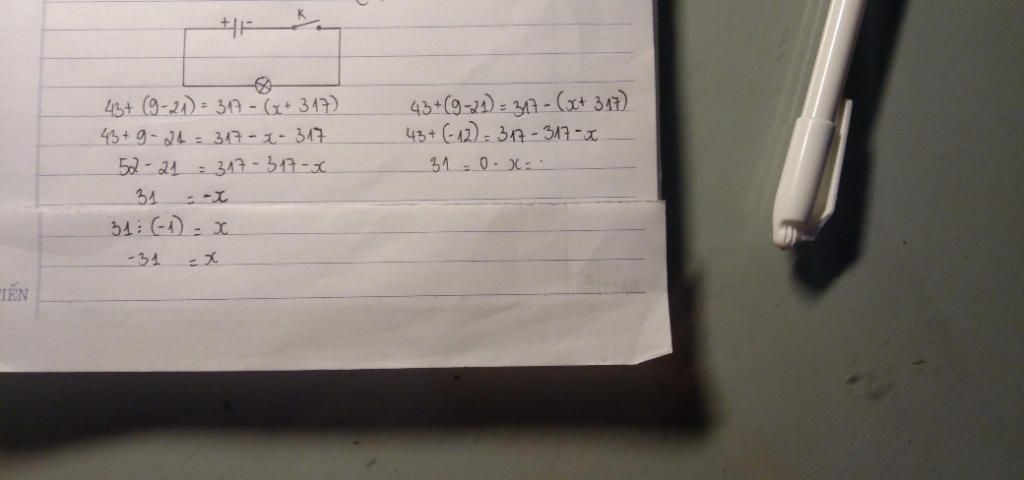 + - K
43+(9-21) = 317-(x+317)
43+9-21 = 317-x-317
52-21 = 317-317-x
31 = -x
31:(-1) = x
-31 = x
43+(9-21) = 317-(x+317)
43+(-12) = 317-317-x
31 = 0-x =
IẾN